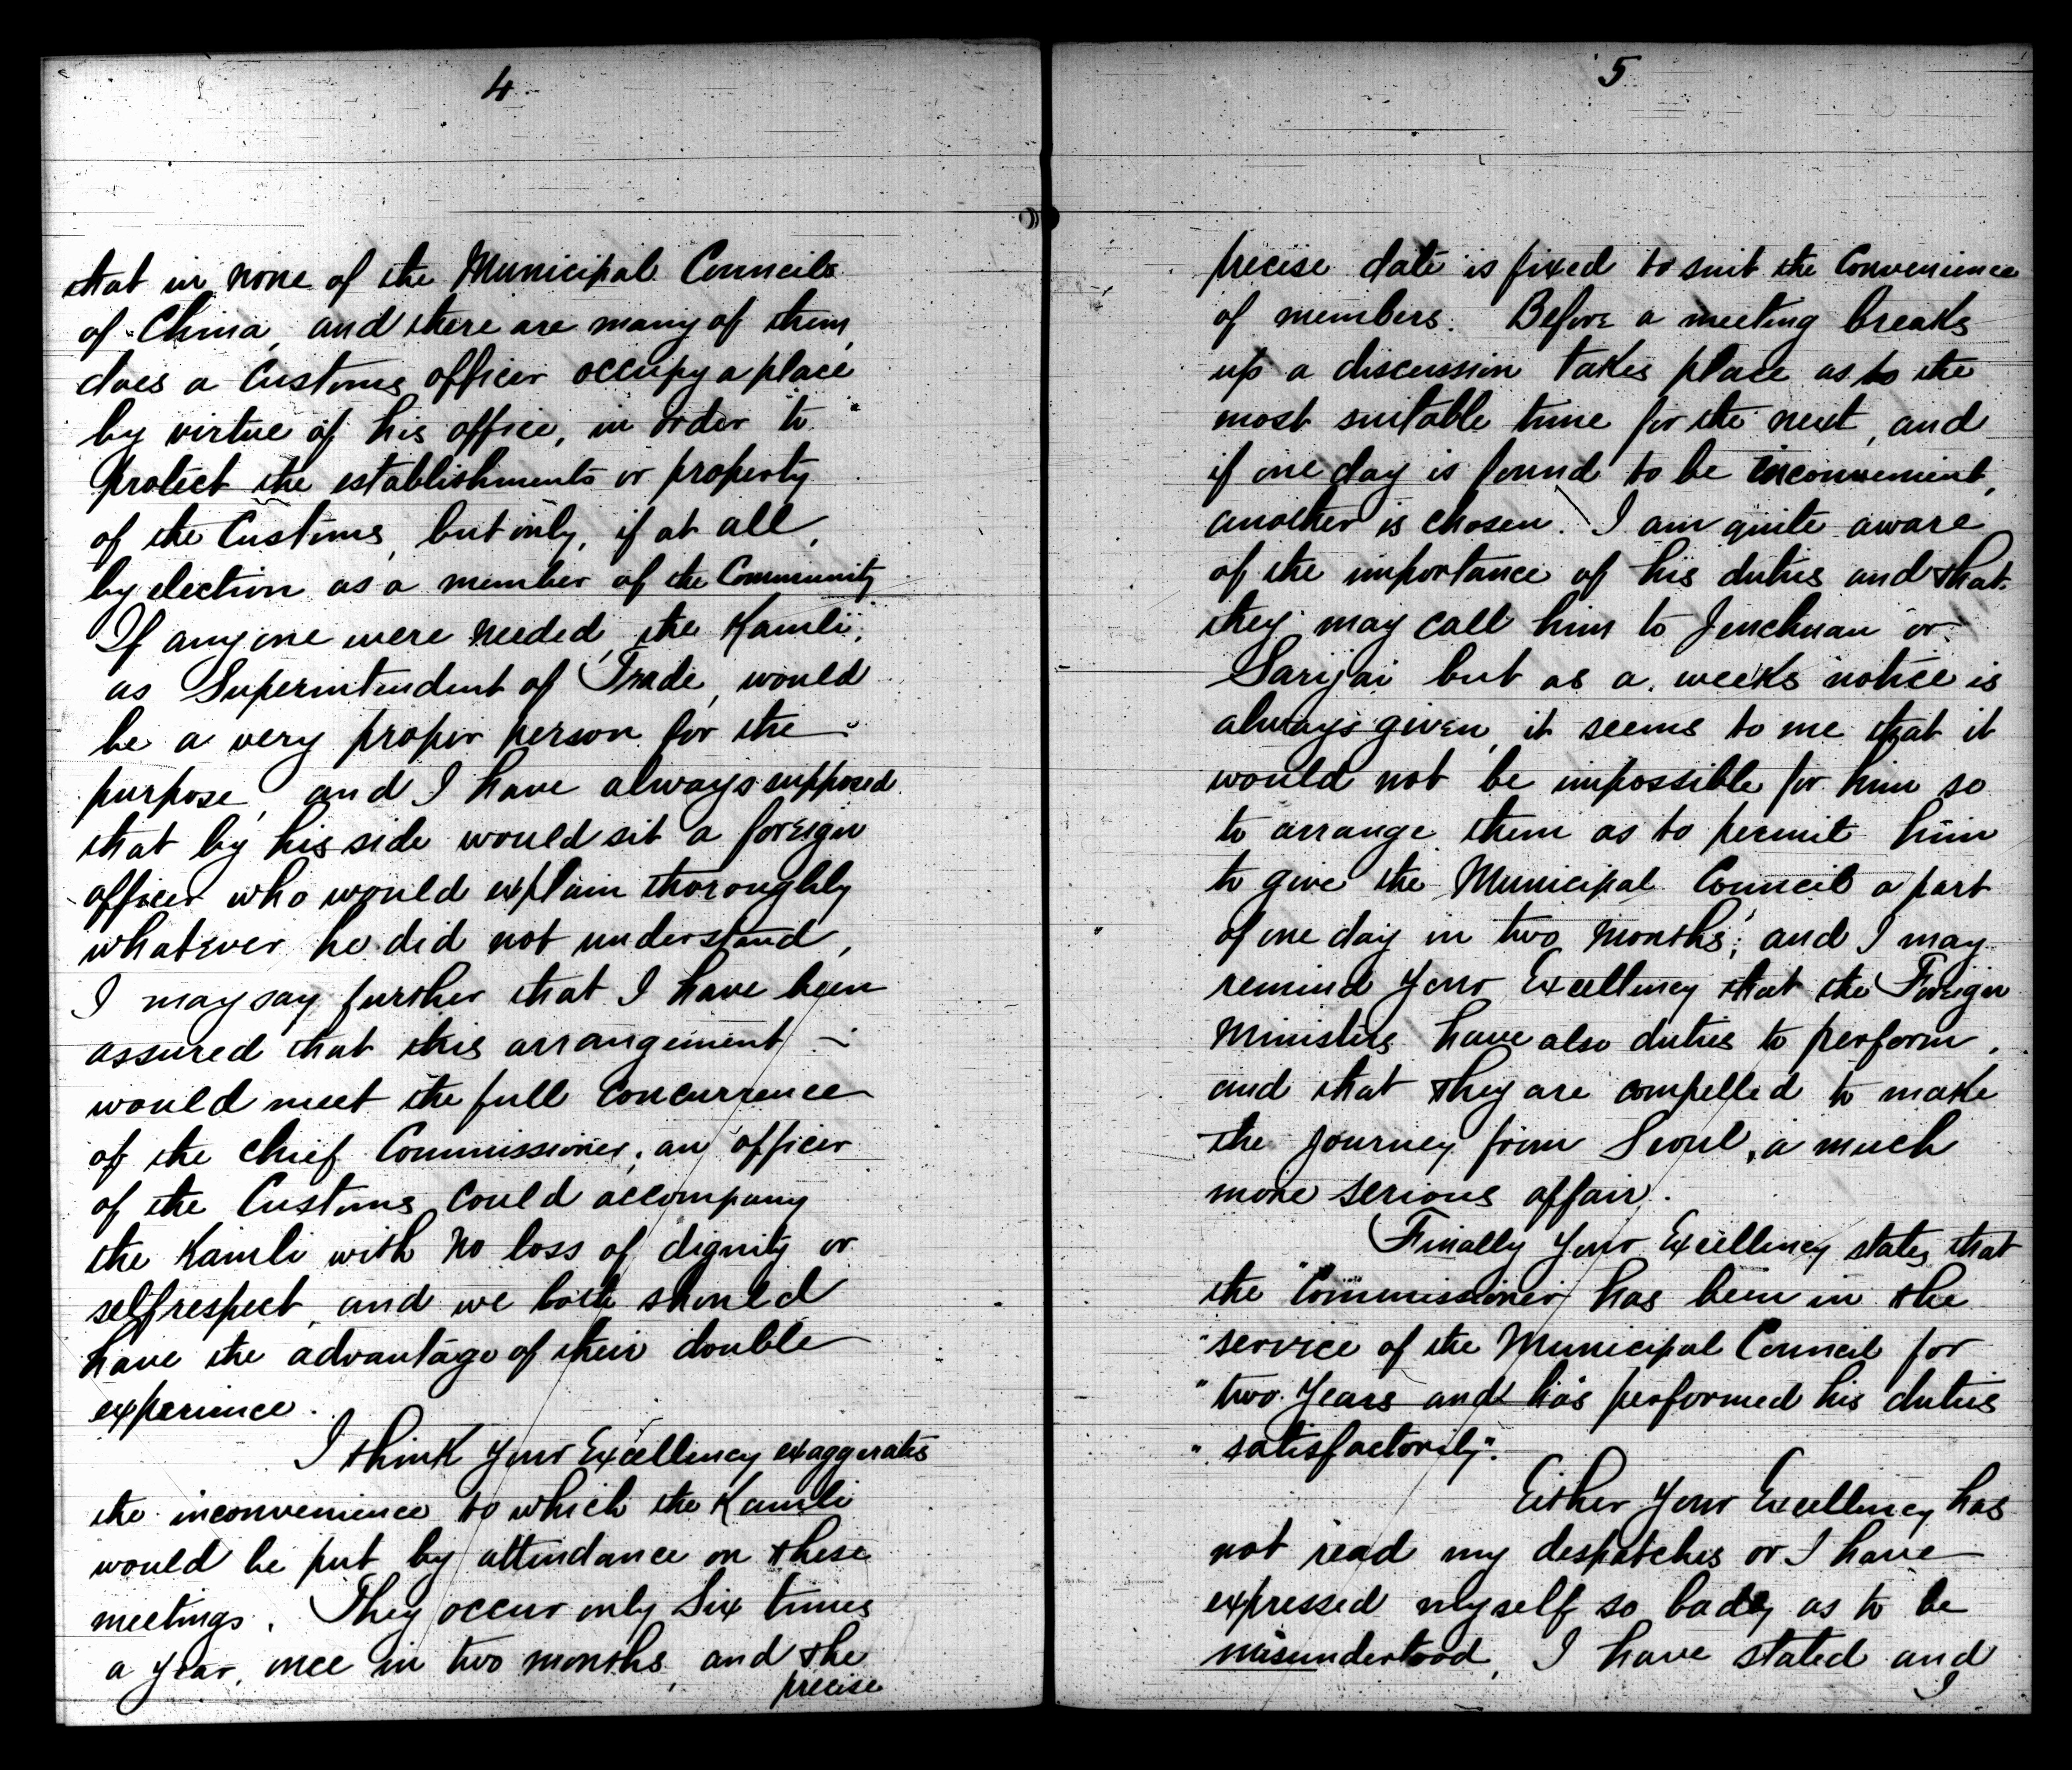 4
that in none of the Municipal Councils
of China, and there are many of them,
does a Customs officer occupy a place
by virtue of his office, in order to
protect the establishments or property
of the Customs, but only, if at all,
by election as a member of the Community
If any one were needed, the Kamli,
as Superintendent of Trade, would
be a very proper person for the
purpose, and I have always supposed
that by his side would sit a foreign
officer who would explain thoroughly
whatever he did not understand,
I may say further that I have been
assured that this arrangement
would meet the full concurrence
of the Chief Commissioner; an officer
of the Customs could accompany
the Kamli with no loss of dignity or
selfrespect, and we both should
have the advantage of their double
experience.
I think Your Excellency exaggerates
the inconvenience to which the Kamli
would be put by attendance on these
meetings. They occur only Six times
a year, once in two months, and the
precise
5
precise date is fixed to suit the Convenience
of members. Before a meeting breaks
up a discussion takes place as to the
most suitable time for the next, and
if one day is found to be inconvenient,
another is chosen. I am quite aware
of the importance of his duties and that
they may call him to Jenchuan or
Sarijai but as a weeks notice is
always given, it seems to me that it
would not be impossible for him so
to arrange them as to permit him
to give the Municipal Council a part
of one day in two months; and I may
remind Your Excellency that the Foreign
Ministers have also duties to perform,
and that they are compelled to make
the journey from Seoul, a much
more serious affair.
Finally Your Excellency states that
the "Commissioner has been in the
"service of the Municipal Council for
"two years and has performed his duties
"satisfactorily".
Either Your Excellency has
not read my despatches or I have
expressed myself so badly as to be
misunderstood, I have stated and
I